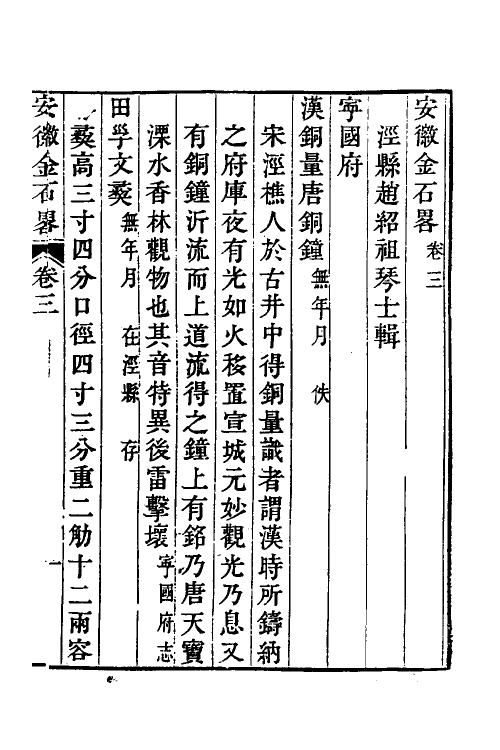 安徽金石畧卷三
涇縣趙紹祖琴士輯
寧國府
漢銅量唐銅鐘無年月　佚
宋涇樵人於古井中得銅量識者謂漢時所鑄納
之府庫夜有光如火移置宣城元妙觀光乃息又
有銅鐘沂流而上道流得之鐘上有銘乃唐天寶
溧水香林觀物也其音特異後雷擊壞寧國府志
田孚文䵼無年月　在涇縣　存
䵼高三寸四分口徑四寸三分重二觔十二兩容
安徽金石畧　卷三　一